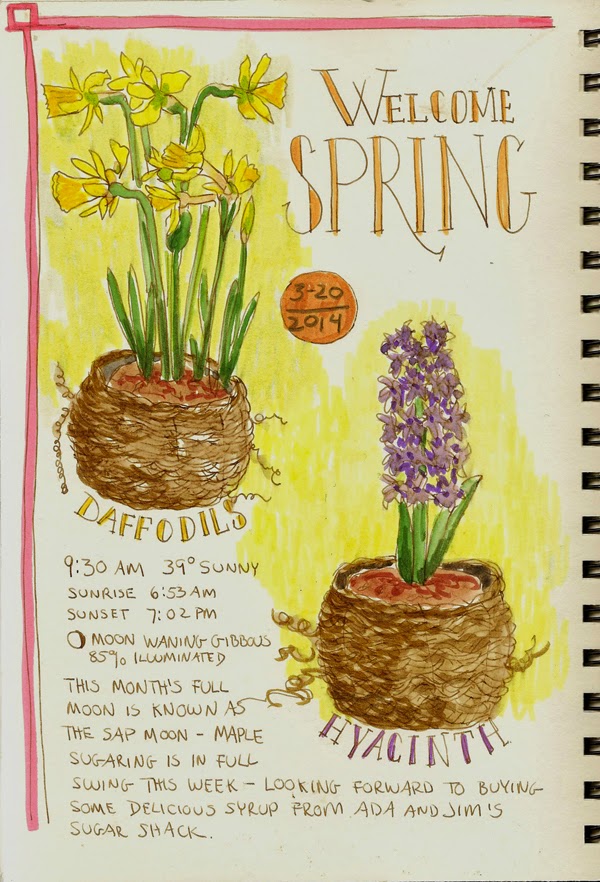 WELCOME
SPRING
3-20
2014
DAFFODILS
9:30 AM 39° SUNNY
SUNRISE 6:53 AM
SUNSET 7:02 PM
MOON WANING GIBBOUS
85% ILLUMINATED
THIS MONTH'S FULL
MOON IS KNOWN AS
THE SAP MOON - MAPLE
SUGARING IS IN FULL
SWING THIS WEEK - LOOKING FORWARD TO BUYING
SOME DELICIOUS SYRUP FROM ADA AND JIM'S
SUGAR SHACK.
HYACINTH